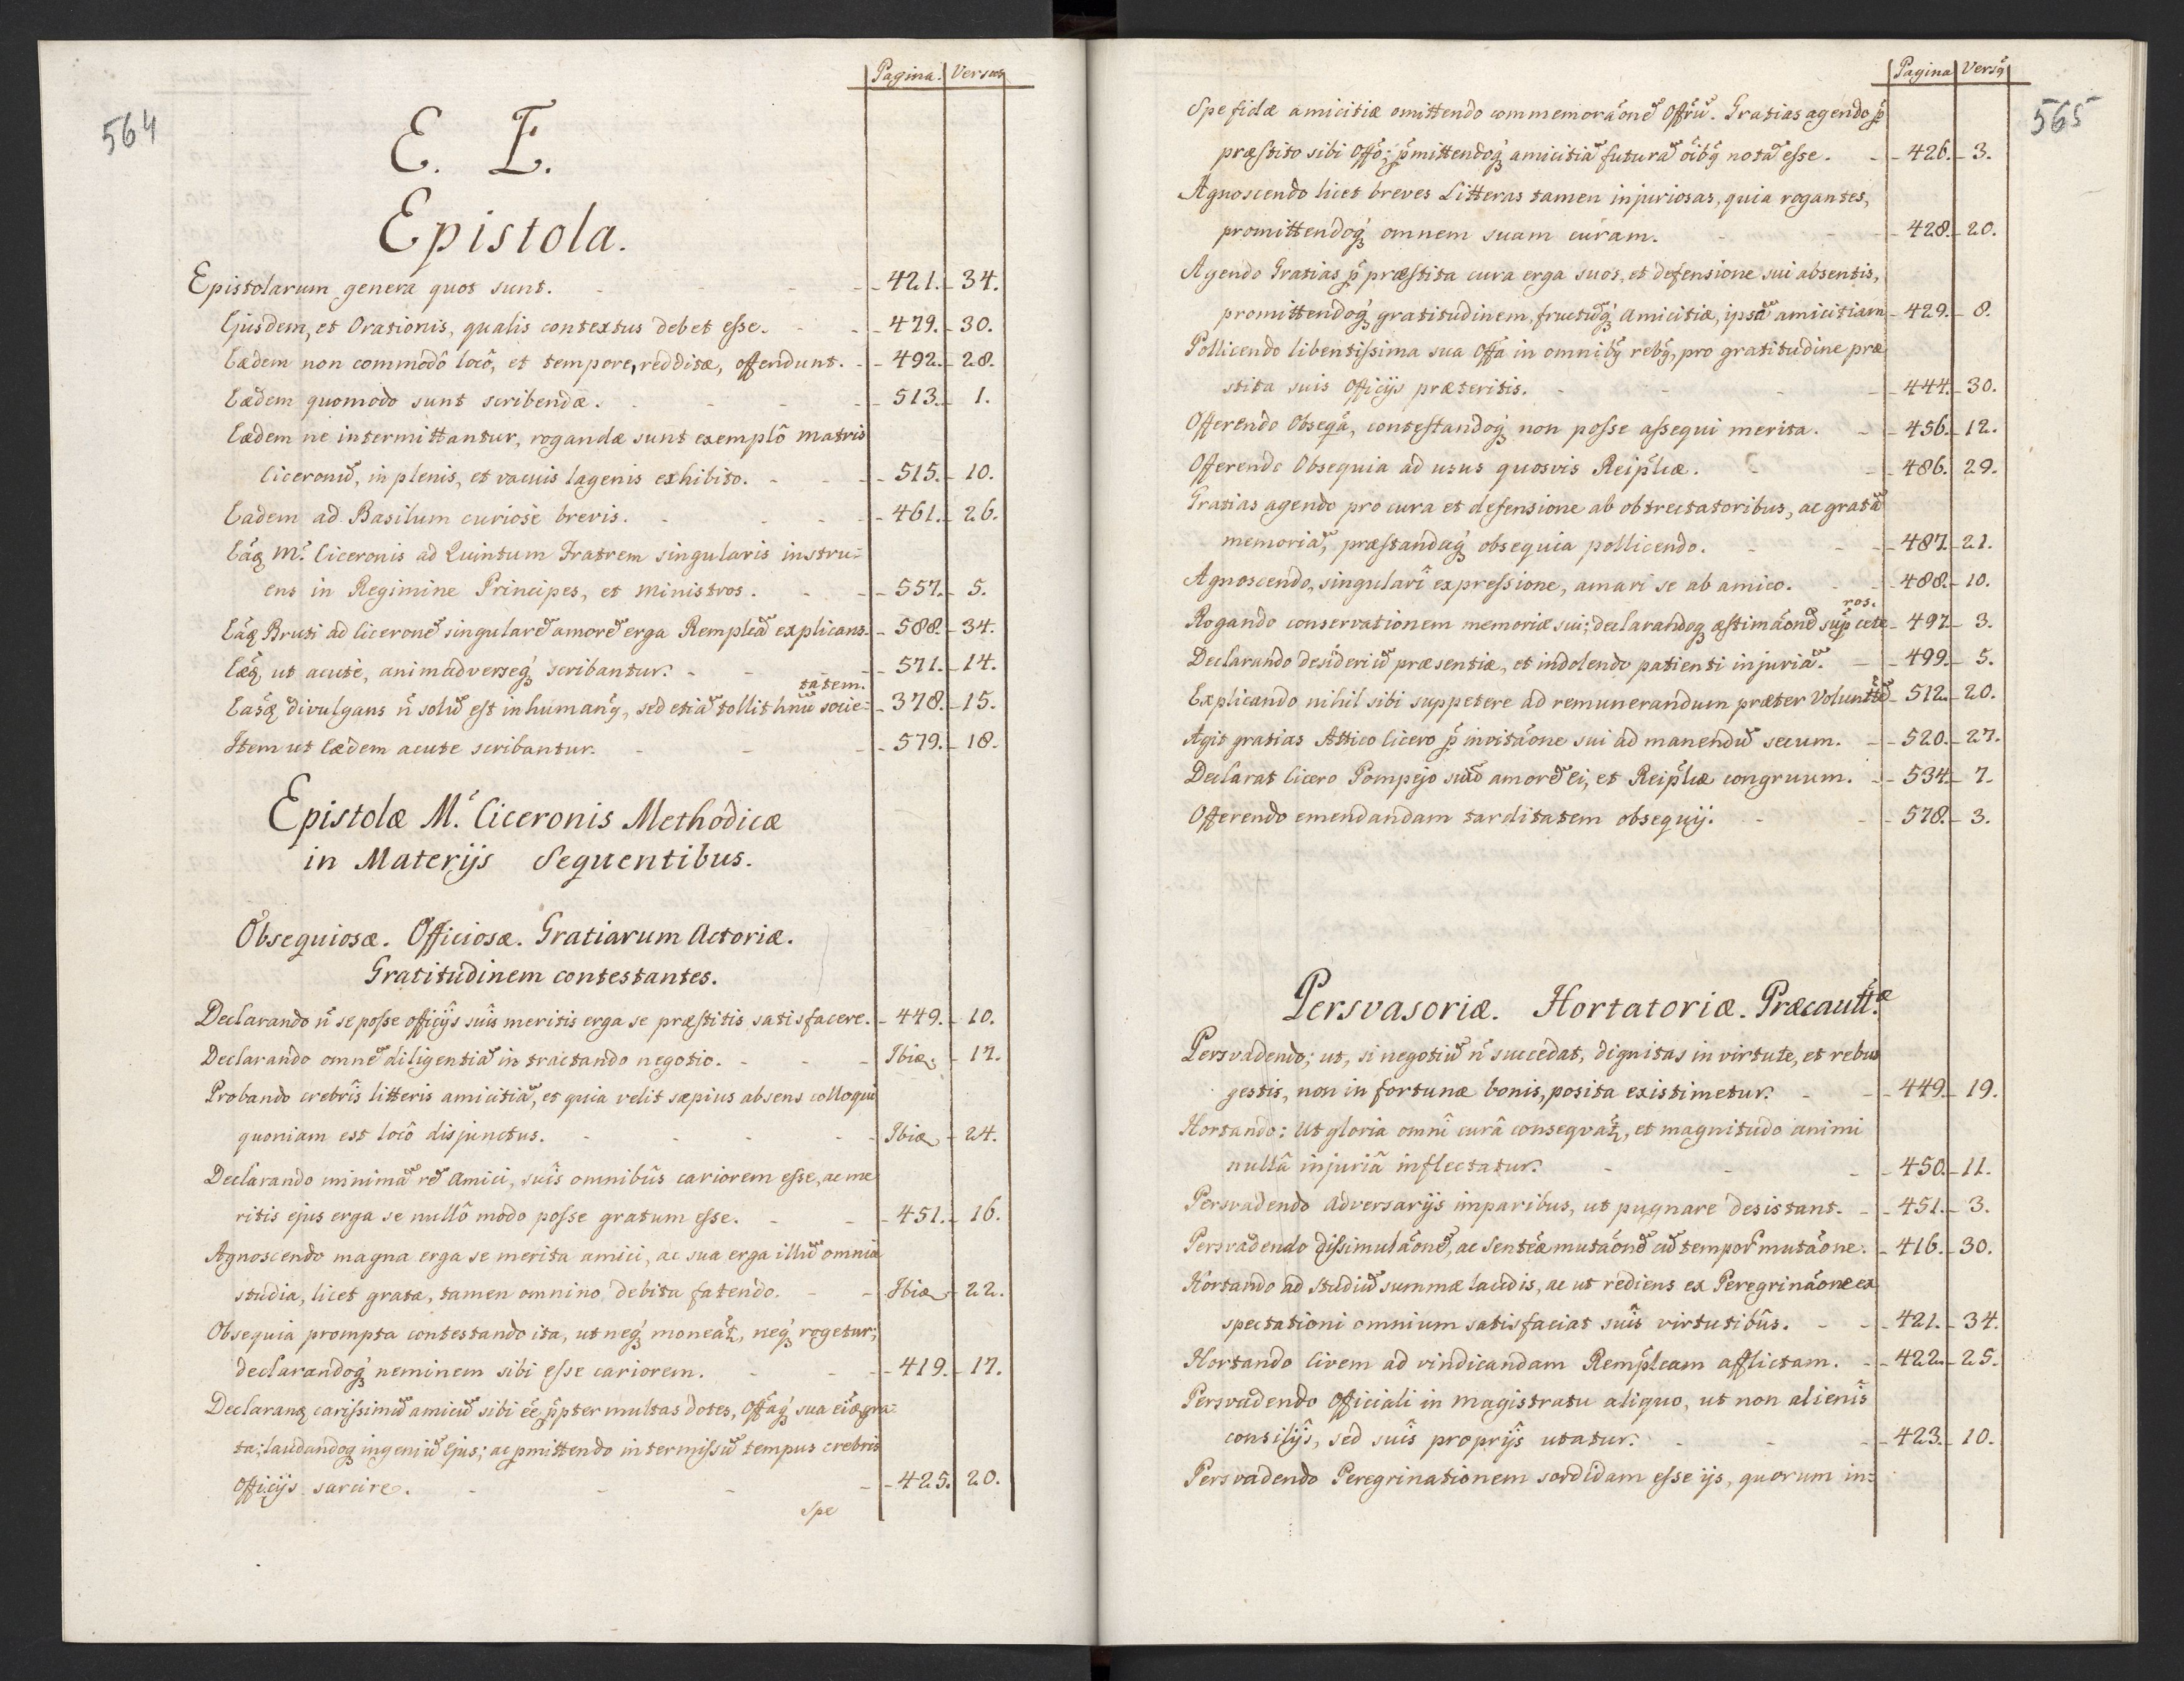 564
Pagina. Versus
E. E.
Epistola.
Epistolarum genera quot sunt. - - - 421. - 34.
Ejusdem, et Orationis, qualis contextus debet esse. - - 479. - 30.
Eædem non commodô locô, et tempore, redditæ, offendunt. - 492. - 28.
Eædem quomodo sunt scribendæ. - - - 513. - 1.
Eædem ne intermittantur, rogandæ sunt exemplô Matris
Ciceronis, in plenis, et vacuis lagenis exhibito. - - 515. - 10.
Eadem ad Basilum curiosè brevis. - - - 461. - 26.
M. Ciceronis ad Quintum Fratrem singularis instru-
ens in Regimine Principes, et Ministros. - - 557. - 5.
Bruti ad Ciceronẽ singularẽ amorẽ erga Remplcã explicans. - 588. - 34.
ut acutè, animadverseq́ scribantur. - - 571. - 14.
tatem.
divulgans ñ solũ est inhuman9, sed etiã tollit socie- - 378. - 15.
Item ut Eædem acute scribantur. - - 579. - 18.
Epistolæ M. Ciceronis Methodicæ
in Materijs Sequentibus.
Obsequiosæ. Officiosæ. Gratiarum Actoriæ.
Gratitudinem contestantes.
Declarando ñ se posse officijs suis meritis erga se præstitis satisfacere. - 449. - 10.
Declarando omnẽ diligentiã in tractando negotio. - - - 17.
Probando crebrîs litteris amicitiã, et quia velit sæpius absens colloqui
quoniam est locô disjunctus. - - - - 24.
Declarando minimã rẽ Amici, suîs omnibûs cariorem esse, ac me
ritis ejus erga se nullô modo posse gratum esse. - - 451. - 16.
Agnoscendo magna erga se merita amici, ac sua erga illũ omnia
studia, licet grata, tamen omnino debita fatendo. - - 22.
Obsequia prompta contestando ita, ut neq́ neq́ rogetur;
declarandoq́ neminem sibi esse cariorem. - - - 419. - 17.
carissimũ amicũ sibi ẽe p̃pter multas dotes, sua gra-
ta; ingeniũ Ejus; ac pmittendo intermissũ tempus crebris
Officijs sarcire. - - - - 425. 20.
Spe
565
Pagina Vers9
Spe fidæ amicitiæ omittendo commemorãonẽ Offrũ. Gratias agendo p̃
præstito sibi Offõ; p̃mittendoq́ amicitiã futurã õib9 notã esse. - - 426. - 3.
Agnoscendo licet breves Litteras tamen injuriosas, quia rogantes,
promittendoq́ omnem suam curam. - - - 428. - 20.
Agendo Gratias p̃ præstita cura erga suos, et defensione sui absentis,
promittendoq́ gratitudinem, fructũq́ Amicitiæ, ipsã amicitiam - 429. - 8.
Pollicendo libentissima sua Offã in omnib9 reb9, pro gratitudine præ
stita suis Officijs præteritis. - - - - 444. - 30.
Offerendo Obseqã, contestandoq́ non posse assequi merita. - - 456. - 12.
Offerendo Obsequia ad usus quosvis Reiplcæ. - - 486. 29.
Gratias agendo pro cura et defensione ab obtrectatoribus, ac gratã
memoriã, præstandaq́ obsequia pollicendo. - - - 487. - 21.
Agnoscendo, singulari expressione, amari se ab amico. - - 488. - 10.
ros.
Rogando conservationem memoriæ sui; declarandoq́ æstimãonẽ sup cete - 497. - 3.
Declarando desideriũ præsentiæ, et indolendo patienti injuriã. - - 499. - 5.
Explicando nihil sibi suppetere ad remunerandum præter - 512. - 20.
Agit gratias Attico Cicero p̃ invitãone sui ad manendũ secum. - - 520. - 27.
Declarat Cicero Pompejo suũ amorẽ Ei, et Reiplcæ congruum. - - 534. - 7.
Offerendo emendandam tarditatem obsequij. - - - 578. - 3.
Persvasoriæ. Hortatoriæ. Præcautt.æ
Persvadendo; ut, si negotiũ ñ succedat, dignitas in virtute, et rebus
gestis, non in fortunæ bonis, posita existimetur. - - 449. - 19.
Hortando: Ut gloria omnî curâ et magnitudo animi
nullâ injuriâ inflectatur. - - - - 450. - 11.
Persvadendo Adversarijs imparibus, ut pugnare desistant. - - 451. - 3.
Persvadendo dissimulãonẽ, ac Sentẽæ mutãonẽ cũ mutãone. - 416. - 30.
Hortando ad Studiũ summæ laudis, ac ut rediens ex Peregrinãone ex
spectationi omnium satisfaciat suîs virtutibûs. - - - 421. - 34.
Hortando Civem ad vindicandam Remplcam afflictam. - - 422. - 25.
Persvadendo Officiali in Magistratu aliquo, ut non alienîs
consilijs, sed suîs proprijs utatur. - - - - 423. - 10.
Persvadendo Peregrinationem sordidam esse ijs, quorum in-